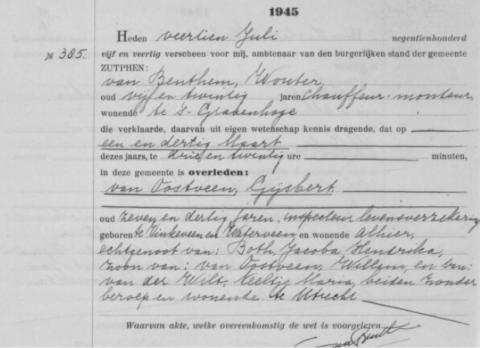 1945
Heden veertien Juli negentienhonderd
№ 385. vijf en veertig verscheen voor mij, ambtenaar van den burgerlijken stand der gemeente
ZUTPHEN:
van Benthem, Wouter
oud vijf en twintig jaren chauffeur-monteur
wonende te 's-Gravenhage
die verklaarde, daarvan uit eigen wetenschap kennis dragende, dat op
een en dertig Maart
dezes jaars, te drie en twintig ure minuten,
in deze gemeente is overleden:
van Oostveen, Gijsbert
oud zeven en dertig jaren, inspecteur levensverzekering
geboren te Vinkeveen en Waterveen en wonende alhier,
echtgenoot van: Both, Jacoba Hendrika,
zoon van: van Oostveen, Willem, en van:
van der Wilt, Aeltje Maria, beiden zonder
beroep en wonende te Utrecht
Waarvan akte, welke overeenkomstig de wet is voorgelezen.